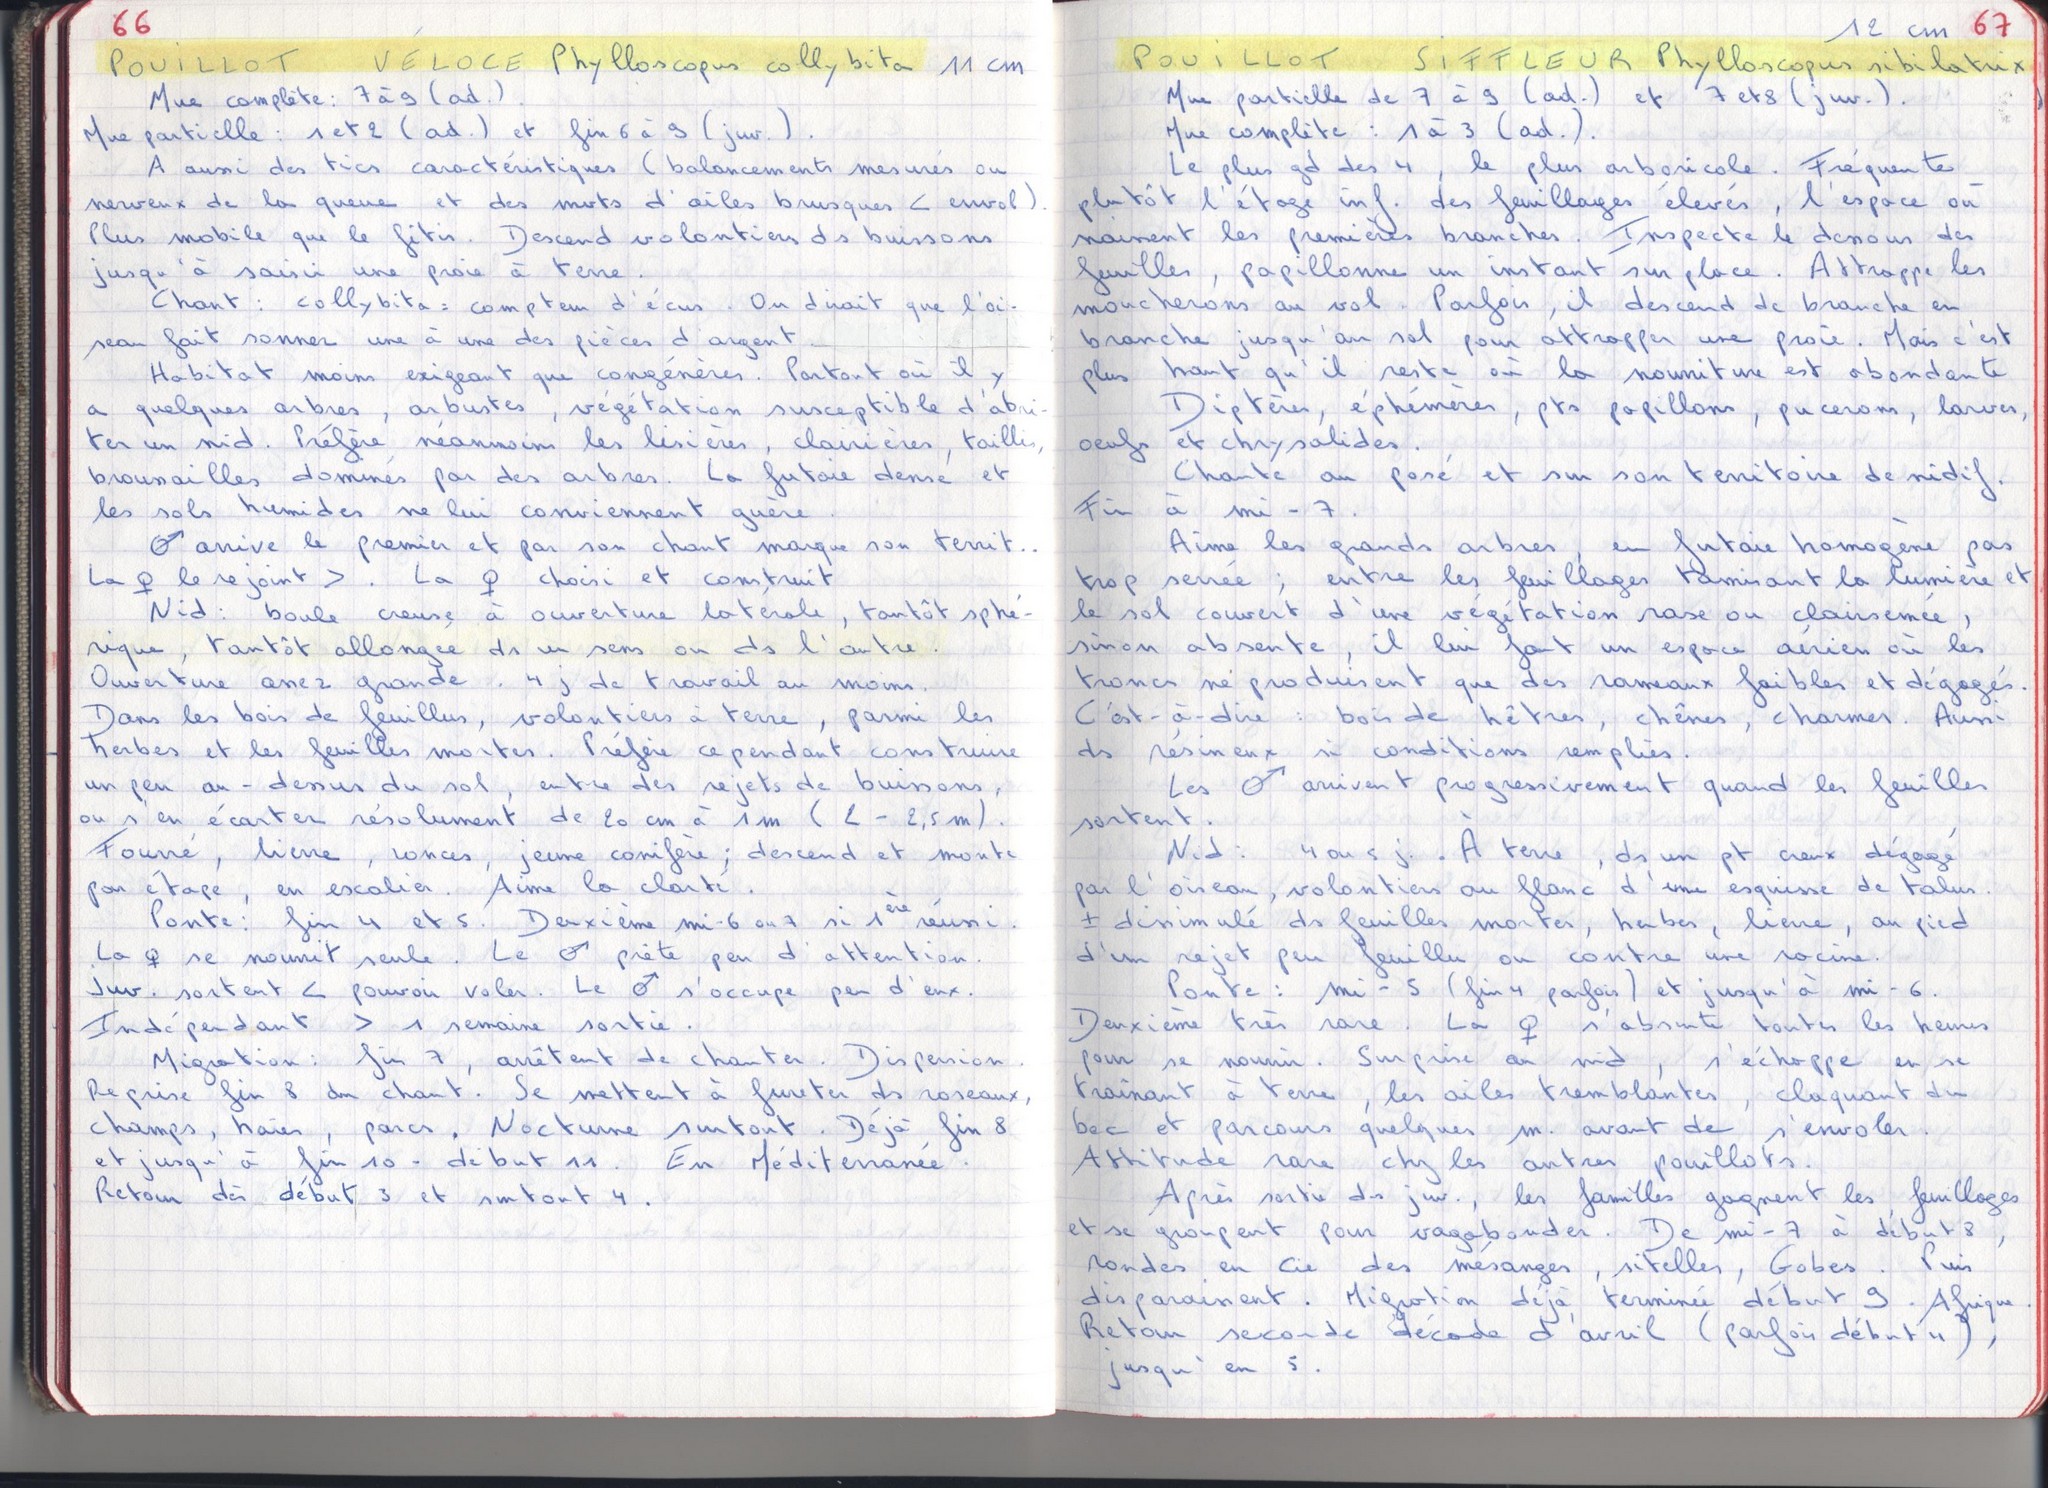 66
POUILLOT VÉLOCE Phylloscopus collybita 11 cm
Mue complète : 7 à 9 (ad.).
Mue partielle : 1 et 2 (ad.) et fin 6 à 9 (juv.).
A aussi des tics caractéristiques (balancements mesurés ou
nerveux de la queue et des mvts d'ailes brusques < envol).
Plus mobile que le fitis. Descend volontiers ds buissons
jusqu'à saisir une proie à terre.
Chant : collybita = compteur d'écus. On dirait que l'oi-
seau fait sonner une à une des pièces d'argent.
Habitat moins exigeant que congénères. Partout où il y
a quelques arbres, arbustes, végétation susceptible d'abri-
ter un nid. Préfère néanmoins les lisières, clairières, taillis,
broussailles dominés par des arbres. La futaie dense et
les sols humides ne lui conviennent guère.
♂ arrive le premier et par son chant marque son territ..
La ♀ le rejoint >. La ♀ choisi et construit
Nid : boule creuse à ouverture latérale, tantôt sphé-
rique, tantôt allongée ds un sens ou ds l'autre.
Ouverture assez grande. 4 j de travail au moins.
Dans les bois de feuillus, volontiers à terre, parmi les
herbes et les feuilles mortes. Préfère cependant construire
un peu au-dessus du sol, entre des rejets de buissons,
ou s'en écarter résolument de 20 cm à 1 m (2 - 2,5 m).
Fourré, lierre, ronces, jeune conifère ; descend et monte
par étape, en escalier. Aime la clarté.
Ponte : fin 4 et 5. Deuxième mi-6 ou 7 si 1ère réussi.
La ♀ se nourrit seule. Le ♂ prête peu d'attention.
Juv. sortent < pouvoir voler. Le ♂ s'occupe peu d'eux.
Indépendant > 1 semaine sortie.
Migration : fin 7, arrêtent de chanter. Dispersion.
Reprise fin 8 du chant. Se mettent à fureter ds roseaux,
champs, haies, parcs. Nocturne surtout. Déjà fin 8
et jusqu'à fin 10 - début 11. En Méditerranée.
Retour dès début 3 et surtout 4.
12 cm 67
POUILLOT SIFFLEUR Phylloscopus sibilatrix
Mue partielle de 7 à 9 (ad.) et 7 et 8 (juv.).
Mue complète : 1 à 3 (ad.).
Le plus gd des 4, le plus arboricole. Fréquente
plutôt l'étage inf. des feuillages élevés, l'espace où
naissent les premières branches. Inspecte le dessous des
feuilles, papillonne un instant sur place. Attrappe les
moucherons au vol. Parfois, il descend de branche en
branche jusqu'au sol pour attrapper une proie. Mais c'est
plus haut qu'il reste où la nourriture est abondante
Diptères, éphémères, pts papillons, pucerons, larves,
oeufs et chrysalides.
Chante au posé et sur son territoire de nidif.
Fin à mi-7.
Aime les grands arbres, en futaie homogène pas
trop serrée ; entre les feuillages tamisant la lumière et
le sol couvert d'une végétation rase ou clairsemée,
sinon absente, il lui faut un espace aérien où les
troncs ne produisent que des rameaux faibles et dégagés.
C'est-à-dire : bois de hêtres, chênes, charmes. Aussi
ds résineux si conditions remplies.
Les ♂ arrivent progressivement quand les feuilles
sortent.
Nid : 4 ou 5 j. À terre, ds un pt creux dégagé
par l'oiseau, volontiers au flanc d'une esquisse de talus.
± dissimulé ds feuilles mortes, herbes, lierre, au pied
d'un rejet peu feuillu ou contre une racine.
Ponte : mi-5 (fin 4 parfois) et jusqu'à mi-6.
Deuxième très rare. La ♀ s'absente toutes les heures
pour se nourrir. Surprise au nid, s'échappe en se
traînant à terre, les ailes tremblantes, claquant du
bec et parcours quelques m. avant de s'envoler.
Attitude rare chez les autres pouillots.
Après sortie des juv., les familles gagnent les feuillages
et se groupent pour vagabonder. De mi-7 à début 8,
rondes en Cie des mésanges, sitelles, Gobes. Puis
disparaissent. Migration déjà terminée début 9. Afrique.
Retour seconde décade d'avril (parfois début 4),
jusqu'en 5.